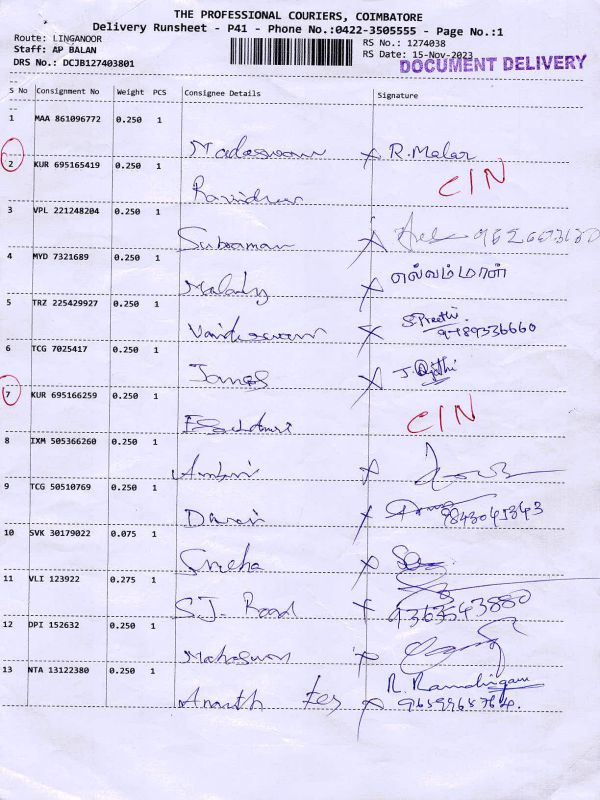 THE PROFESSIONAL COURIERS, COIMBATORE
Delivery Runsheet - P41 - Phone No.:0422-3505555 - Page No.:1
Route: LINGANOOR RS No.: 1274038
Staff: AP BALAN RS Date: 15-Nov-2023
DRS No.: DCJB127403801 DOCUMENT DELIVERY
S No Consignment No Weight PCS Consignee Details Signature
1 MAA 861096772 0.250 1
R. Malar
2 KUR 695165419 0.250 1
CIN
3 VPL 221248204 0.250 1
Subraman
4 MYD 7321689 0.250 1
5 TRZ 225429927 0.250 1
S. Preethi
9489336660
6 TCG 7025417 0.250 1
James
7 KUR 695166259 0.250 1
CIN
8 IXM 505366260 0.250 1
9 TCG 50510769 0.250 1
9843045343
10 SVK 30179022 0.075 1
Sneha
11 VLI 123922 0.275 1
S.J. Road 9363543880
12 DPI 152632 0.250 1
13 NTA 13122380 0.250 1
Ananth